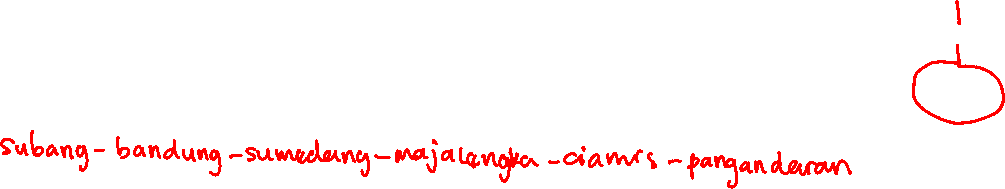 subang - bandung - sumedang - majalengka - ciamis - pangandaran